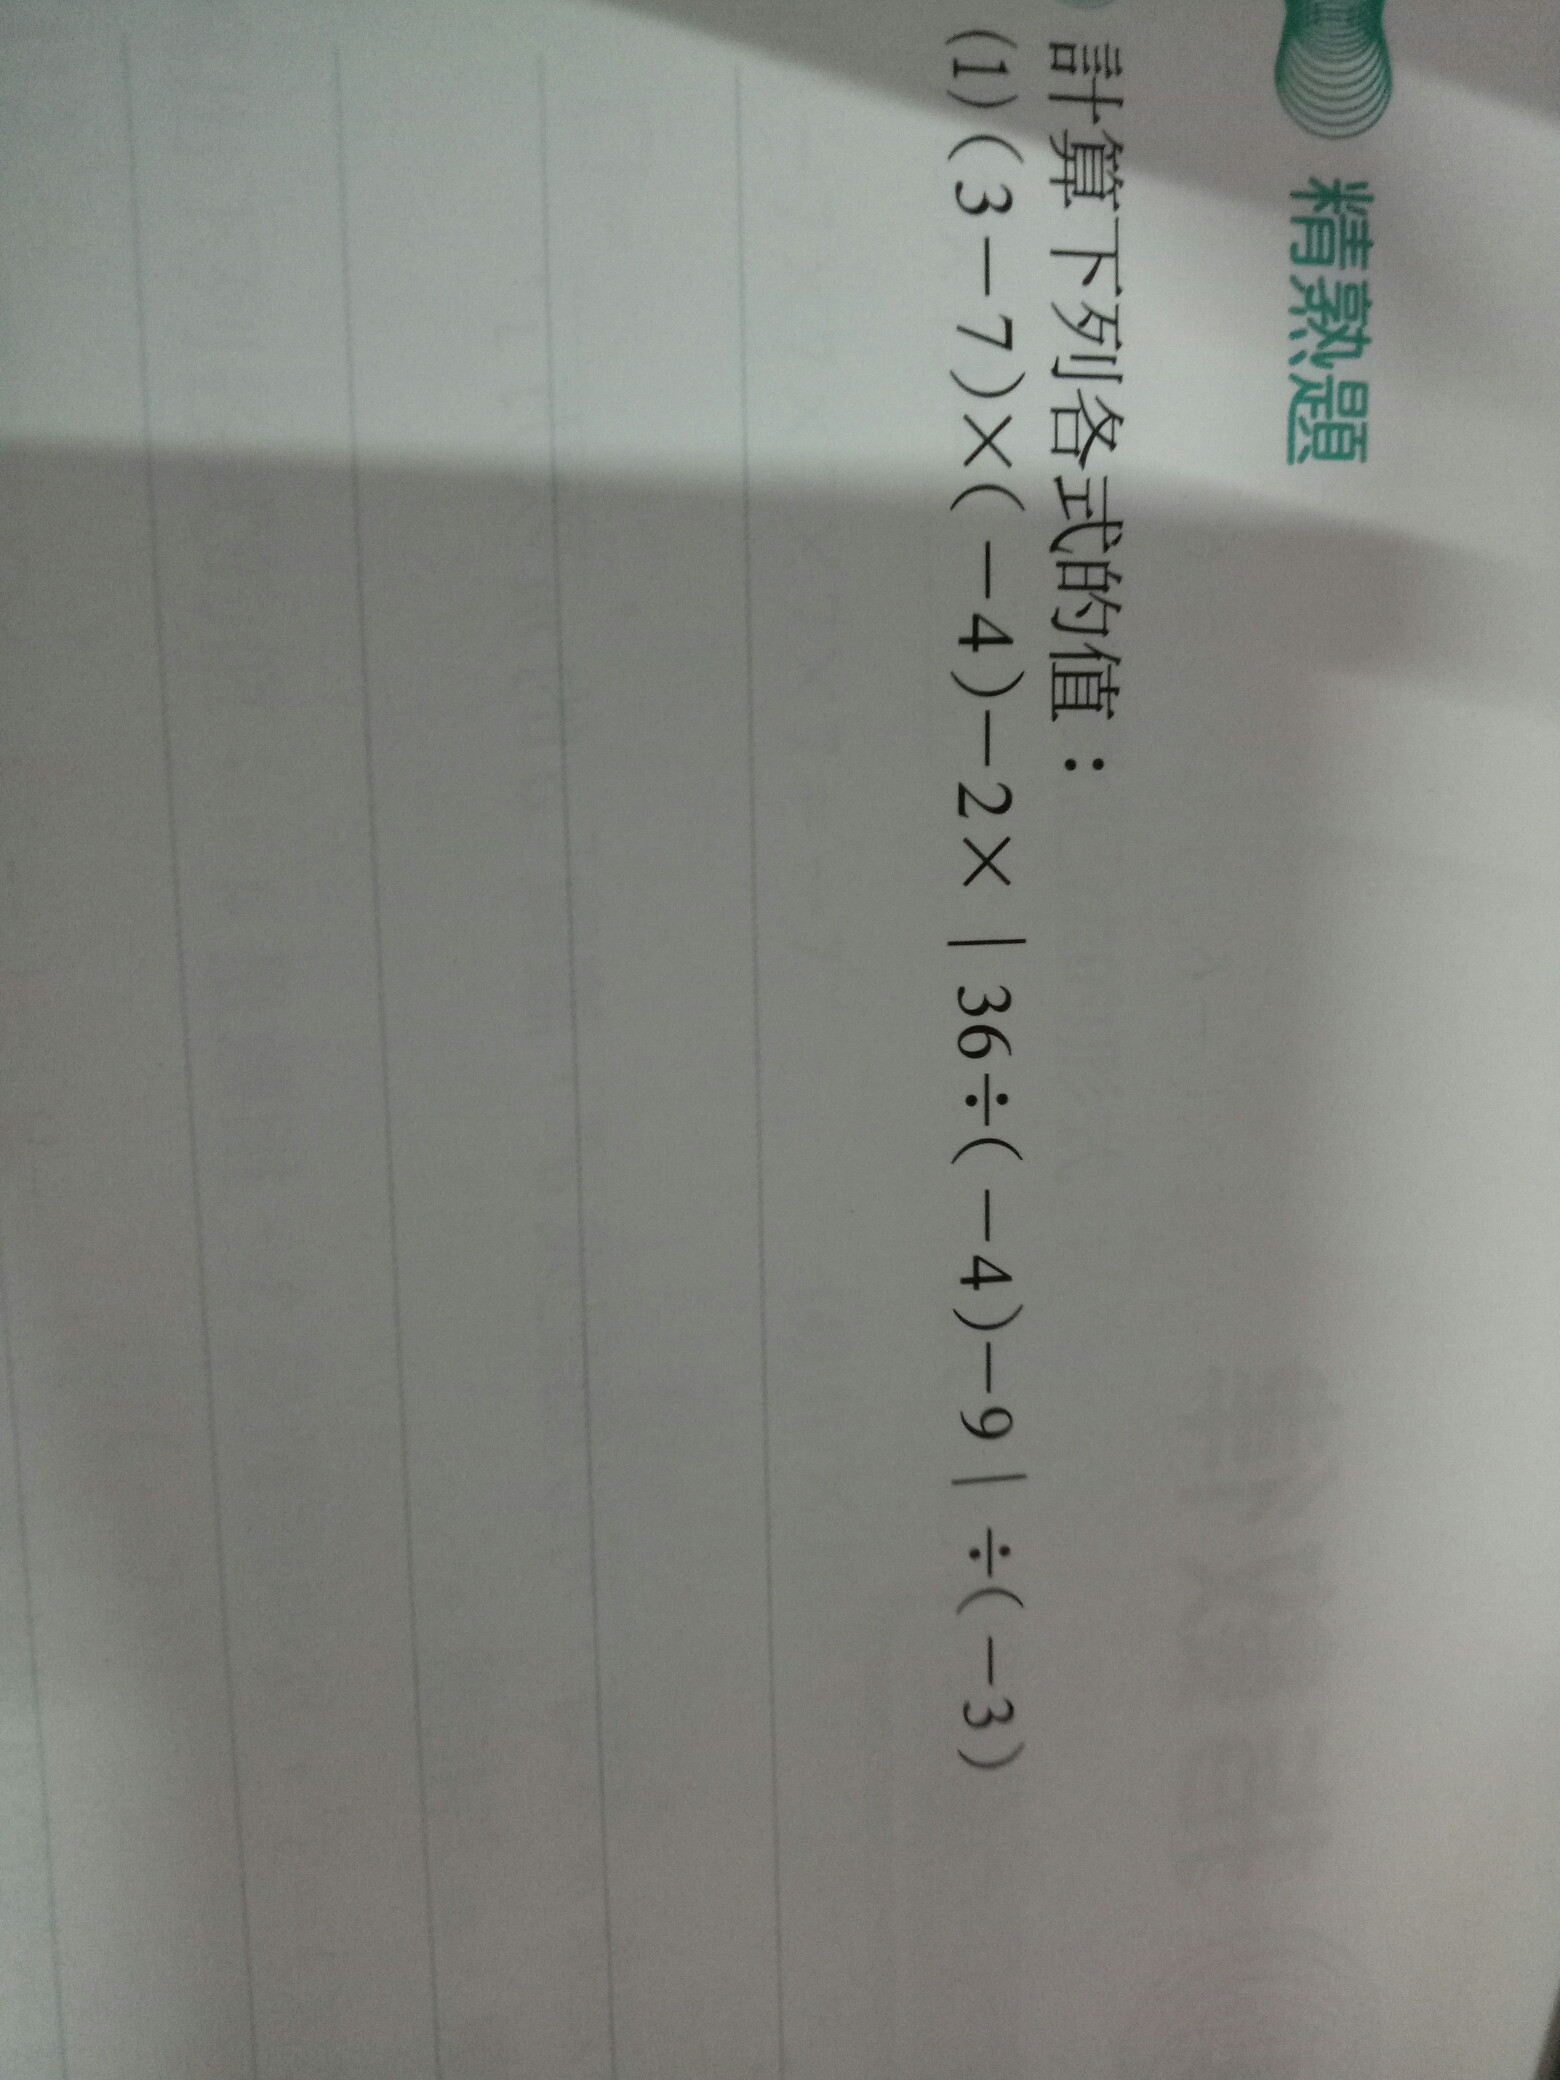 精熟題
計算下列各式的值：
(1)(3－7)×(－4)－2×｜36÷(－4)－9｜÷(－3)